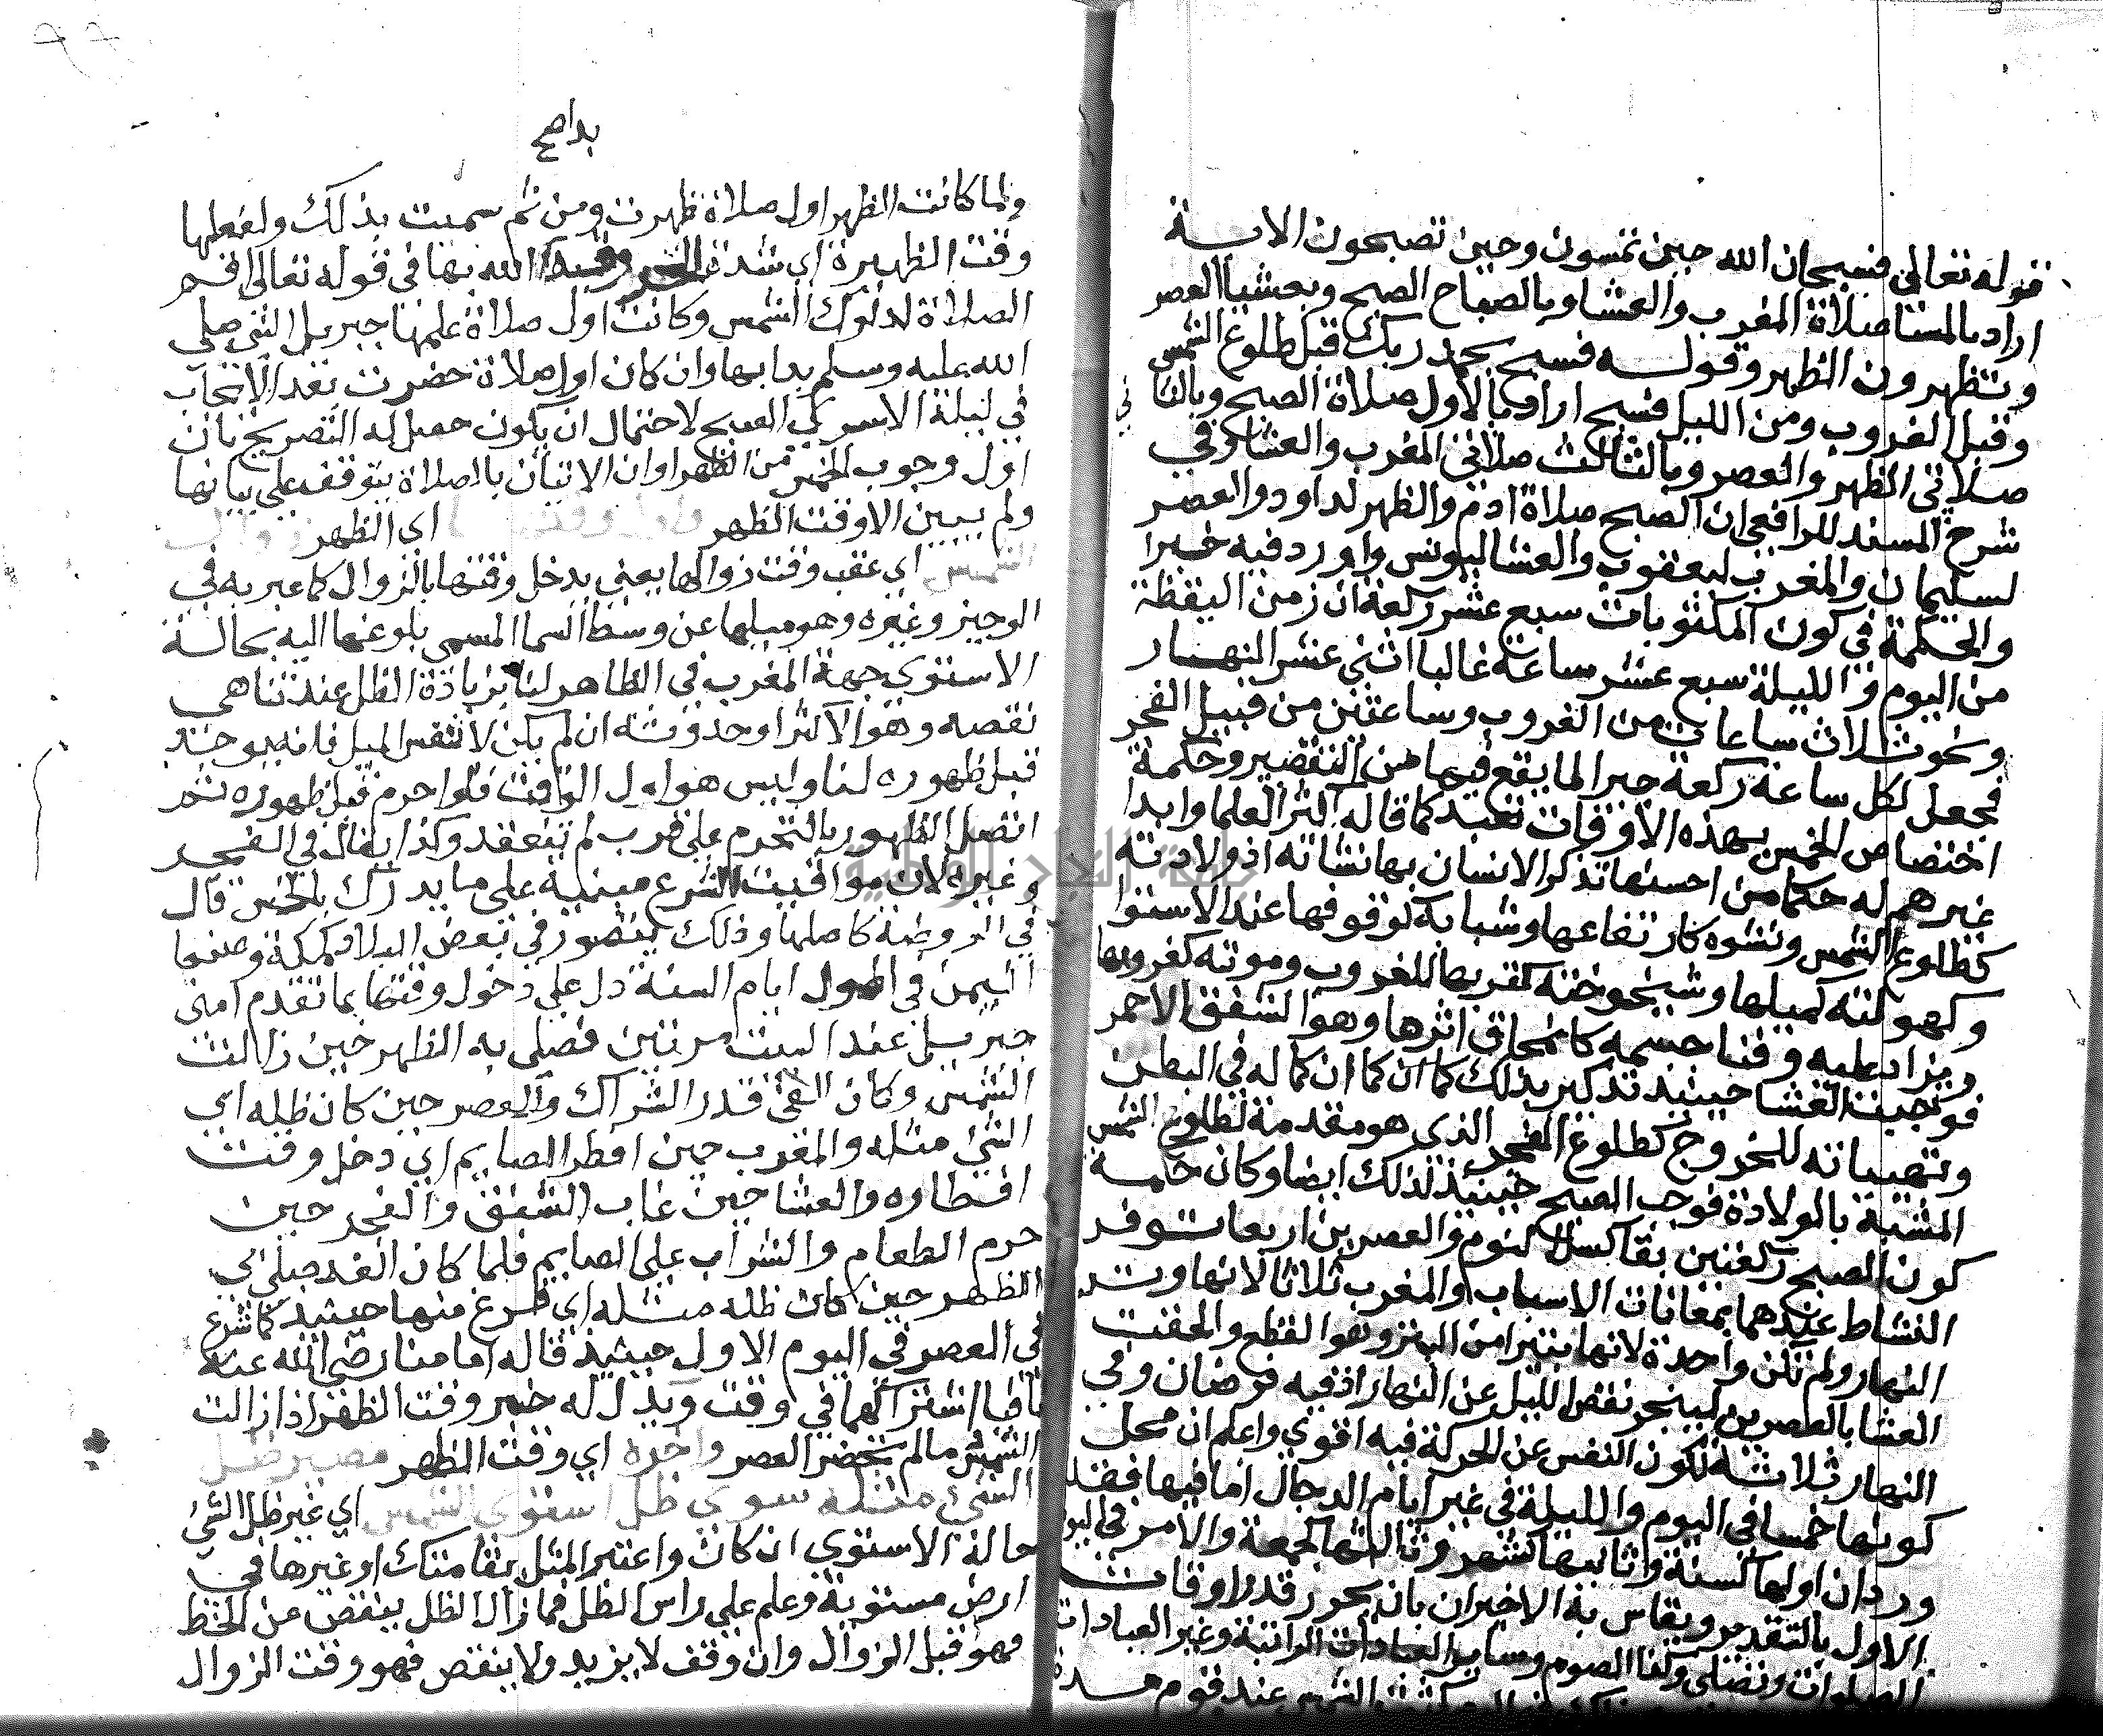 قوله تعالى فسبحان الله حين تمسون وحين تصبحون الاية
اراد بالمسا صلاة المغرب والعشا وبالصباح الصبح وبعشيا العصر
وتظهرون الظهر وقوله فسبح بحمد ربك قبل طلوع الشمس
وقبل الغروب ومن الليل فسبح اراد بالاول صلاة الصبح وبالثا
ني
صلاتي الظهر والعصر وبالثالث صلاتي المغرب والعشا وفي
شرح المسند للرافعي ان الصبح صلاة ادم والظهر لداود والعصر
لسليمان والمغرب ليعقوب والعشا ليونس واورد فيه خبرا
والحكمة في كون المكتوبات سبع عشر ركعة ان زمن اليقظة
من اليوم والليلة سبع عشر ساعة غالبا اثني عشر النهار
ونحو ثلاث ساعات من الغروب وساعتين من قبيل الفجر
فجعل لكل ساعة ركعة جبرا لما يقع فيها من التقصير وحكمة
اختصاص الخمس بهذه الاوقات تعبد كما قاله اكثر العلما وابدا
غيرهم له حكما من احسنها تذكر الانسان بها نشاته اذ ولادته
كطلوع الشمس ونشوه كارتفاعها وشبابه كوقوفها عند الاستوا
وكهولته كميلها وشيخوخته كقربها للغروب وموته كغروبها
ويزاد عليه وفنا جسمه كانمحاق اثرها وهو الشفق الاحمر
فوجبت العشا حينيذ تذكير بذلك كما ان كماله في البطن
وتهيياته للخروج كطلوع الفجر الذي هو مقدمة لطلوع الشمس
المشبه بالولادة فوجب الصبح حينيذ لذلك ايضا وكان حكمة
كون الصبح ركعتين بقا كسل النوم والعصرين اربعا توفر
النشاط عندهما بمعانات الاسباب والمغرب ثلاثا لانها وتر
النهار ولم تكن واحدة لانها بتيرا من البتر وهو القطع والحقت
العشا بالعصرين لينجبر نقص الليل عن النهار اذ فيه فرضان وفي
النهار ثلاثة لكون النفس عن الحركة فيه اقوى واعلم ان محل
كونها خمسا في اليوم والليلة في غير ايام الدجال اما فيها فقد
ورد ان اولها كسنة وثانيها كشهر وثالثها كجمعة والامر في اليو
الاول بالتقدير ويقاس به الاخيران بان يحرر قدر اوقات
الصلوات وتصلى وكذا الصوم وساير العبادات الزمانية وغير العبادات
بداصح
ولما كانت الظهر اول صلاة ظهرت ومن ثم سميت بذلك ولفعلها
وقت الظهيرة اي شدة الحر وقد بدا الله بها في قوله تعالى اقم
الصلاة لدلوك الشمس وكانت اول صلاة علمها جبريل النبي صلى
الله عليه وسلم بدا بها وان كان اول صلاة حضرت بعد الايجاب
في ليلة الاسرى الصبح لاحتمال ان يكون حصل له التصريح بان
اول وجوب الخمس من الظهر اوان الاتيان بالصلاة يتوقف على بيانها
ولم يبين الا وقت الظهر واول وقته اي الظهر زوال
الشمس اي عقب وقت زوالها يعني يدخل وقتها بالزوال كما عبر به في
الوجيز وغيره وهو ميلها عن وسط السما المسمى بلوغها اليه بحالة
الاستوى جهة المغرب في الظاهر لنا بزيادة الظل عند تناهي
نقصه وهو الاكثر او حدوثه ان لم يكن لا نفس الميل فانه يوجد
قبل ظهوره لنا وليس هو اول الوقت فلو احرم قبل ظهوره ثم
اتصل الظهور بالتحرم على قرب لم تنعقد وكذا يقال في الفجر
وغيره لان مواقيت الشرع مبنية على ما يدرك بالحس قال
في الروضة كاصلها وذلك يتصور في بعض البلاد كمكة وصنعا
اليمن في اطول ايام السنة دل على دخول وقتها بما تقدم امني
جبريل عند البيت مرتين فصلى به الظهر حين زالت
الشمس وكان الفي قدر الشراك والعصر حين كان ظله اي
الشي مثله والمغرب حين افطر الصايم اي دخل وقت
افطاره والعشا حين غاب الشفق والفجر حين
حرم الطعام والشراب على الصايم فلما كان الغد صلى بي
الظهر حين كان ظله مثله اي فرغ منها حينيذ كما شرع
في العصر في اليوم الاول حينيذ قاله امامنا رضي الله عنه
نافيا اشتراكهما في وقت ويدل له خبر وقت الظهر اذا زالت
الشمس ما لم تحضر العصر واخره اي وقت الظهر مصير ظل
الشي مثله سوى ظل استوى الشمس اي غير ظل الشي
حالة الاستوى ان كان واعتبر المثل بقامتك او غيرها في
ارض مستوية وعلم على راس الظل فما زال الظل ينقص عن الخط
فهو قبل الزوال وان وقف لا يزيد ولا ينقص فهو وقت الزوال
جامعة النجاح الوطنية